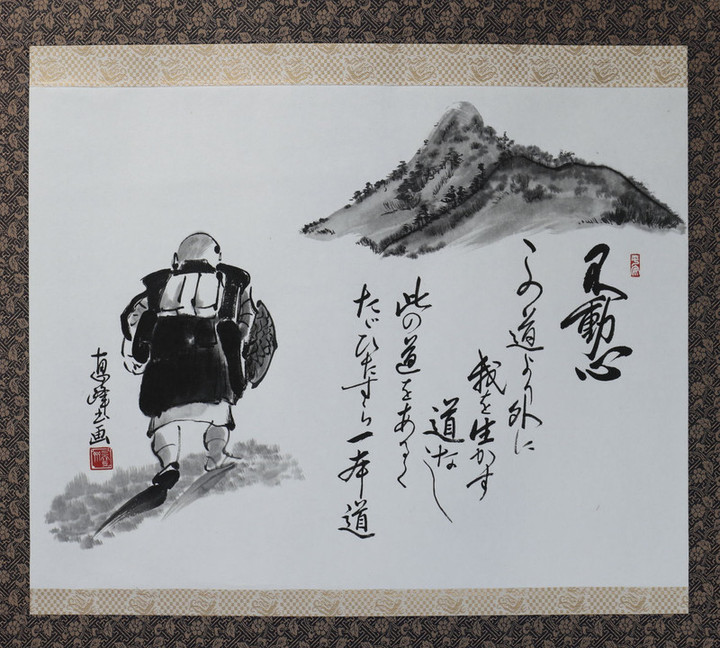 不動心
この道より外に
我を生かす
道なし
此の道をあるく
たゞひたすら一本道
峰書画